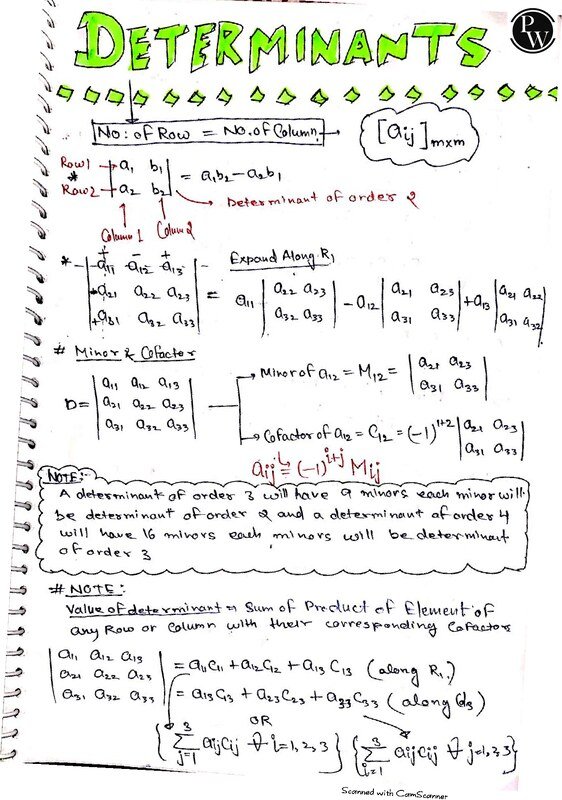 DETERMINANTS
PW
No: of Row = No. of Column → [aij]m×m
Row1 → | a1 b1 |
* Row2 → | a2 b2 | = a1b2 - a2b1
Determinant of order 2
Column 1 Column 2
* | +a11 -a12 +a13 |
| -a21 a22 a23 |
| +a31 a32 a33 |
Expand Along R1
= a11 | a22 a23 | - a12 | a21 a23 | + a13 | a21 a22 |
| a32 a33 | | a31 a33 | | a31 a32 |
# Minor & Cofactor
D = | a11 a12 a13 |
| a21 a22 a23 |
| a31 a32 a33 |
→ Minor of a12 = M12 = | a21 a23 |
| a31 a33 |
→ Cofactor of a12 = C12 = (-1)^1+2 | a21 a23 |
| a31 a33 |
aij = (-1)^i+j Mij
NOTE:-
A determinant of order 3 will have 9 minors each minor will
be determinant of order 2 and a determinant of order 4
will have 16 minors each minors will be determinant
of order 3
# NOTE:
Value of determinant = Sum of Product of Element of
any Row or Column with their corresponding Cofactors
| a11 a12 a13 |
| a21 a22 a23 |
| a31 a32 a33 |
= a11C11 + a12C12 + a13 C13 (along R1)
= a13C13 + a23C23 + a33C33 (along C3)
OR
{ 3 Σ j=1 aijCij ∀ i=1, 2, 3 } { 3 Σ i=1 aijCij ∀ j=1, 2, 3 }
Scanned with CamScanner